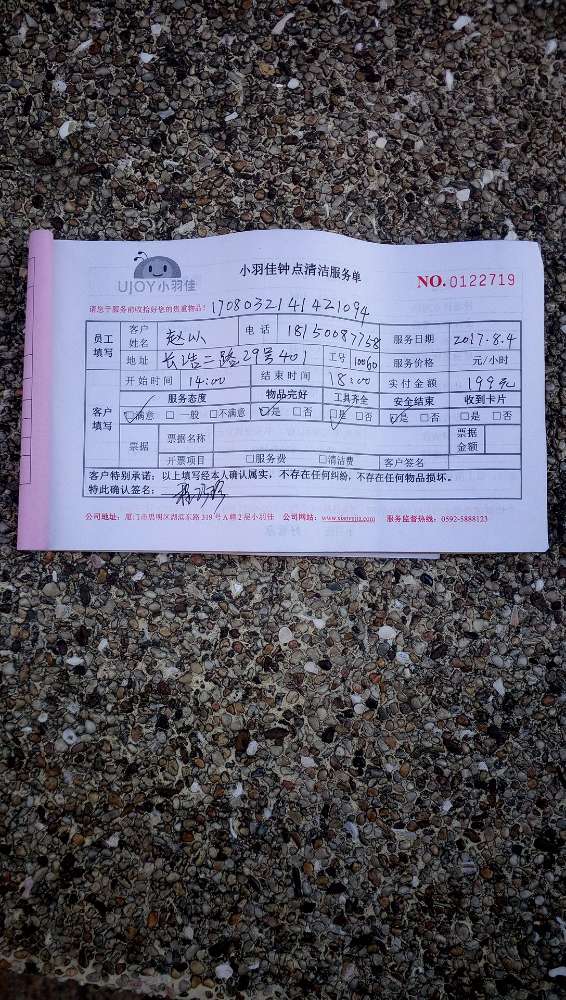 UJOY小羽佳
小羽佳钟点清洁服务单
NO.0122719
请您于服务前收拾好您的贵重物品!
1708032141421094
员工填写 客户姓名 电话 18150087758 服务日期 2017.8.4
地址 长浩二路29号401 工号 10060 服务价格 元/小时
客户填写 开始时间 14:00 结束时间 18:00 实付金额 199元
服务态度 物品完好 工具齐全 安全结束 收到卡片
☑满意 □一般 □不满意 ☑是 □否 ☑是 □否 ☑是 □否 □是 □否
票据 票据名称 票据金额
开票项目 □服务费 □清洁费 客户签名
客户特别承诺：以上填写经本人确认属实，不存在任何纠纷，不存在任何物品损坏。
特此确认签名：
公司地址：厦门市思明区湖滨东路319号A幢2层小羽佳 公司网站：www.xiaoyujia.com 服务监督热线：0592-5888123